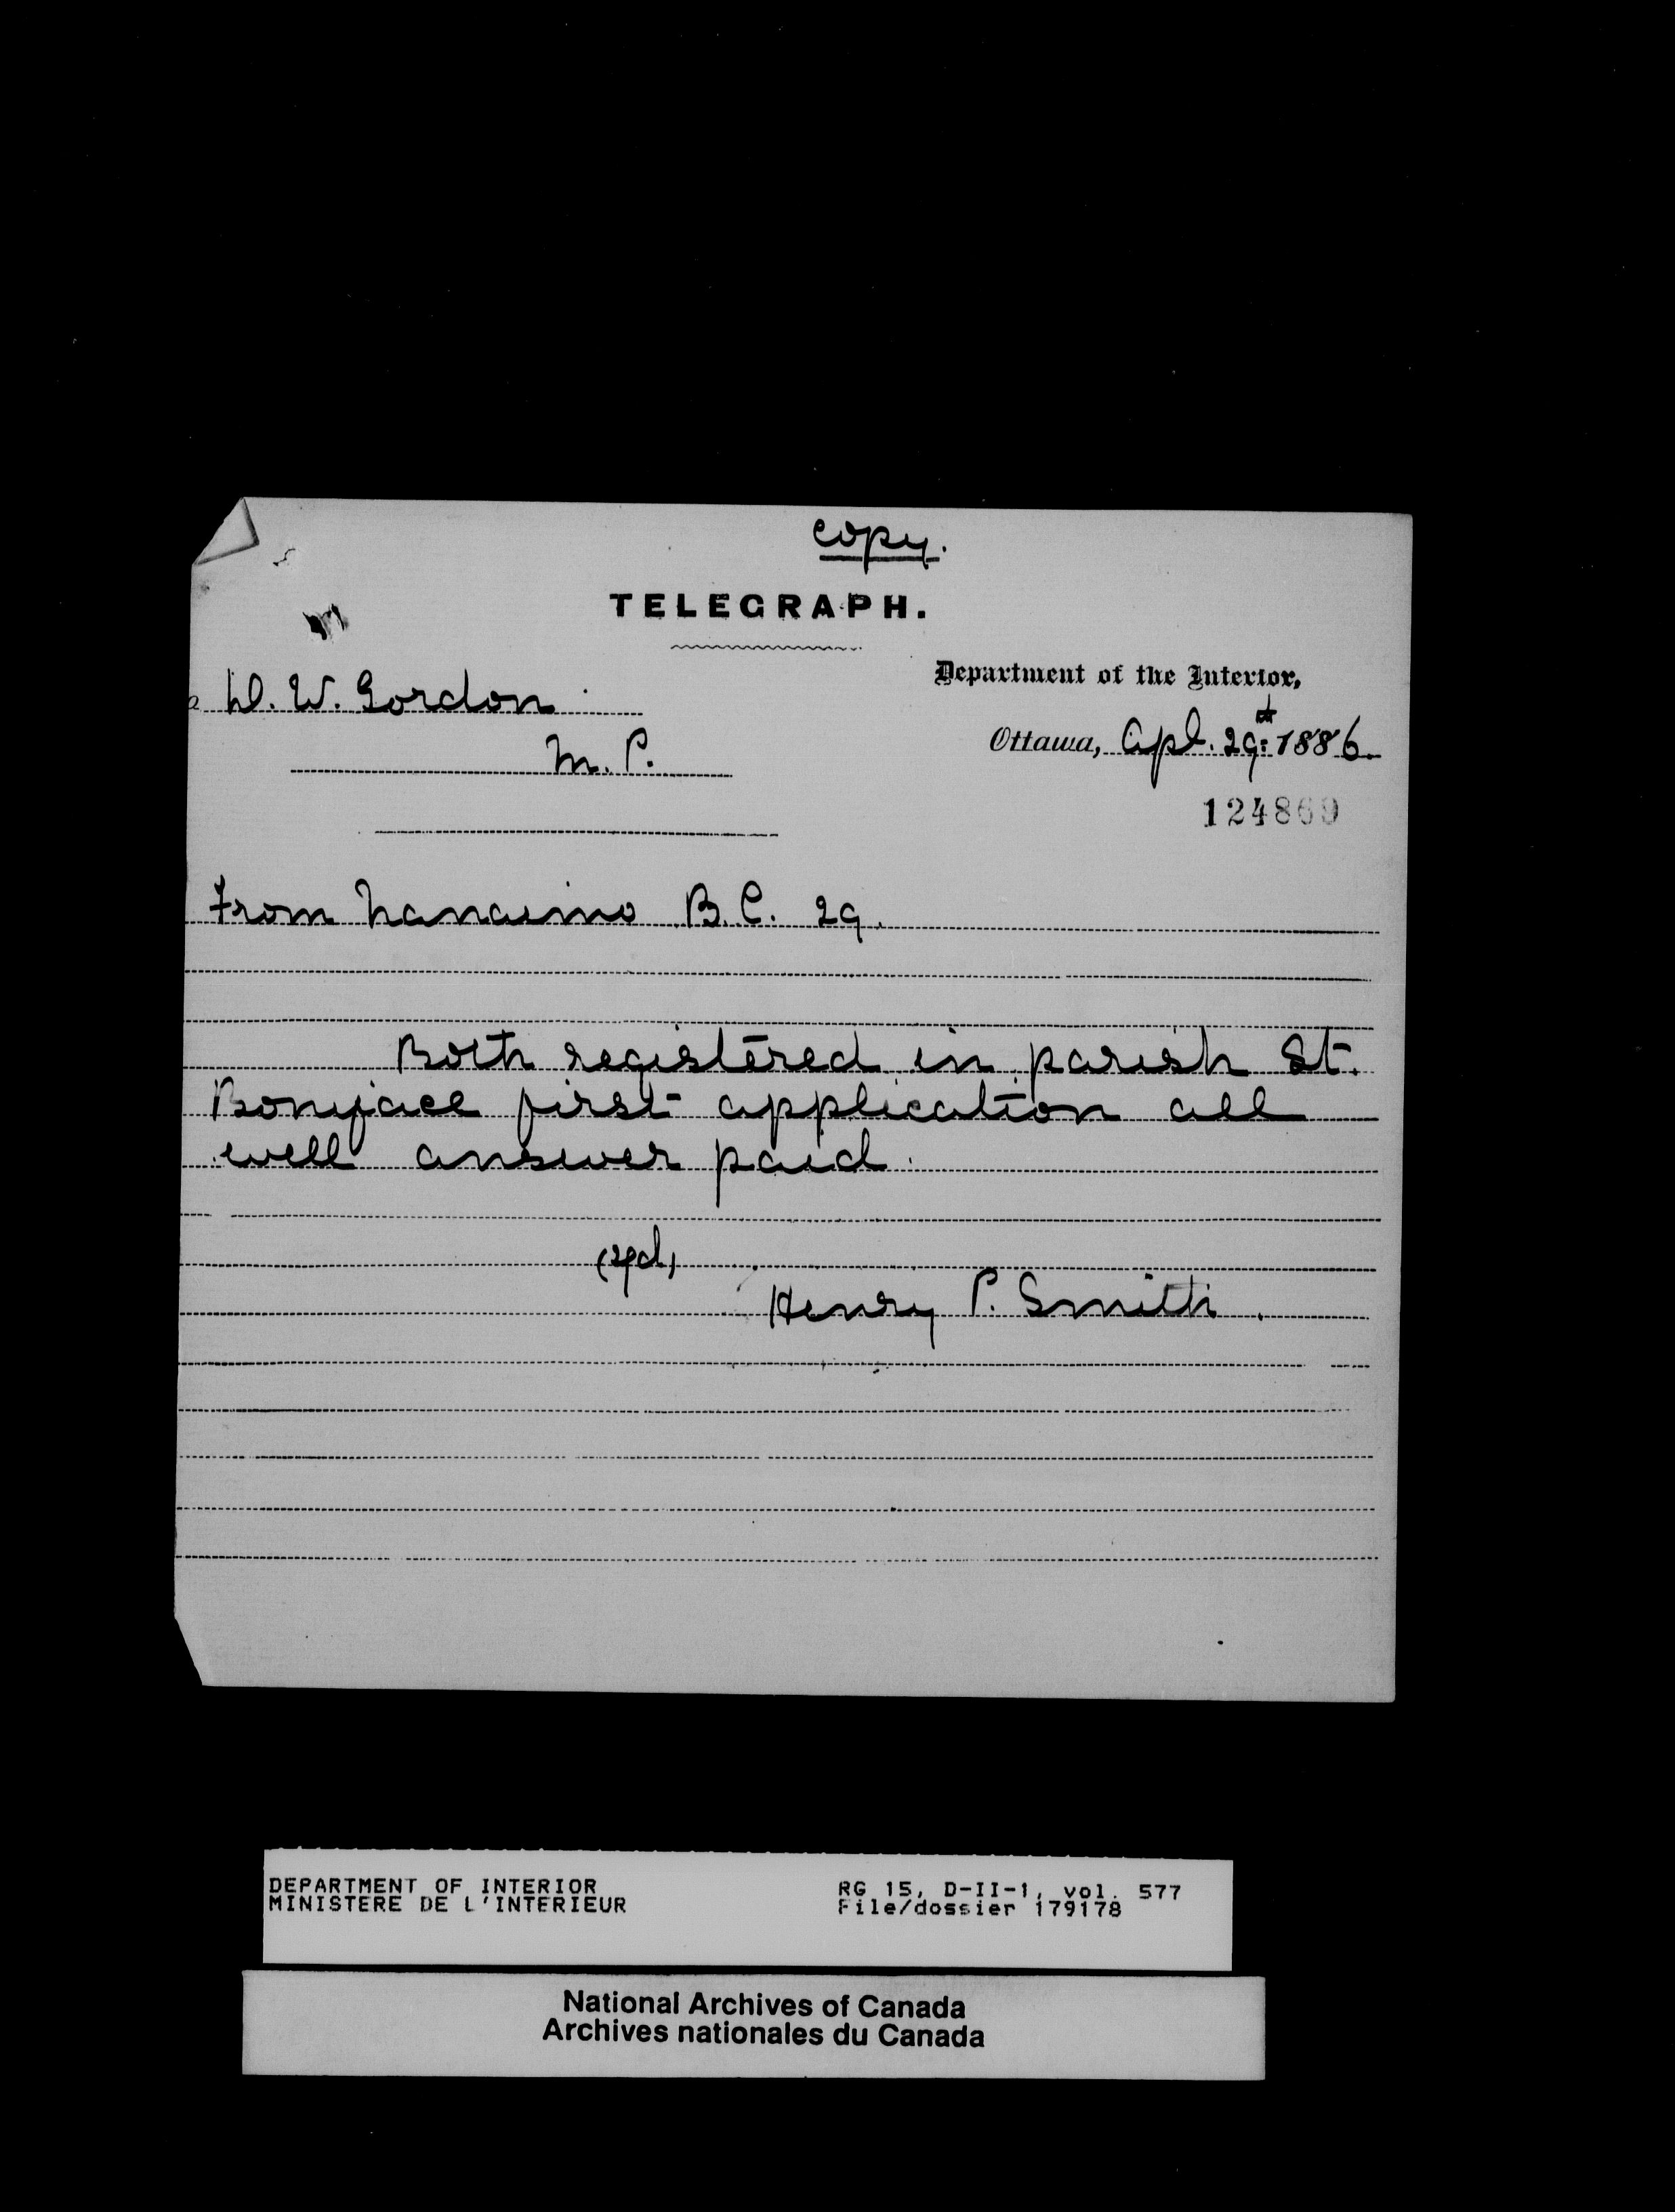 copy.
TELEGRAPH.
Department of the Interior,
D. W. Gordon
M. P.
Ottawa, Apl. 29th 1886.
124869
From Nanaimo B.C. 29.
Both registered in parish St.
Boniface first application all
well answer paid.
(sgd)
Henry P. Smith.
DEPARTMENT OF INTERIOR
MINISTERE DE L'INTERIEUR
RG 15, D-II-1, vol. 577
File/dossier 179178
National Archives of Canada
Archives nationales du Canada